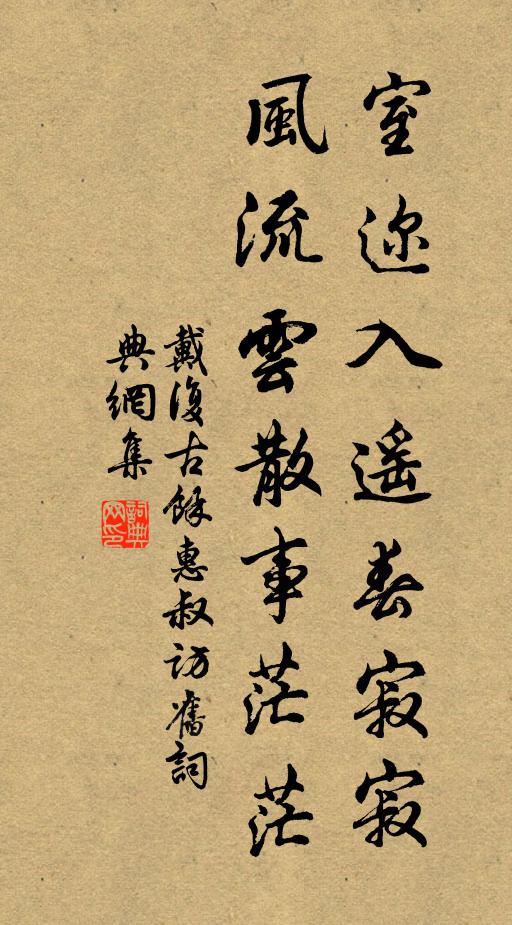 室迩入遥春寂寂
風流雲散事茫茫
戴復古餘惠叔訪舊詞
典網集
詞典
网印